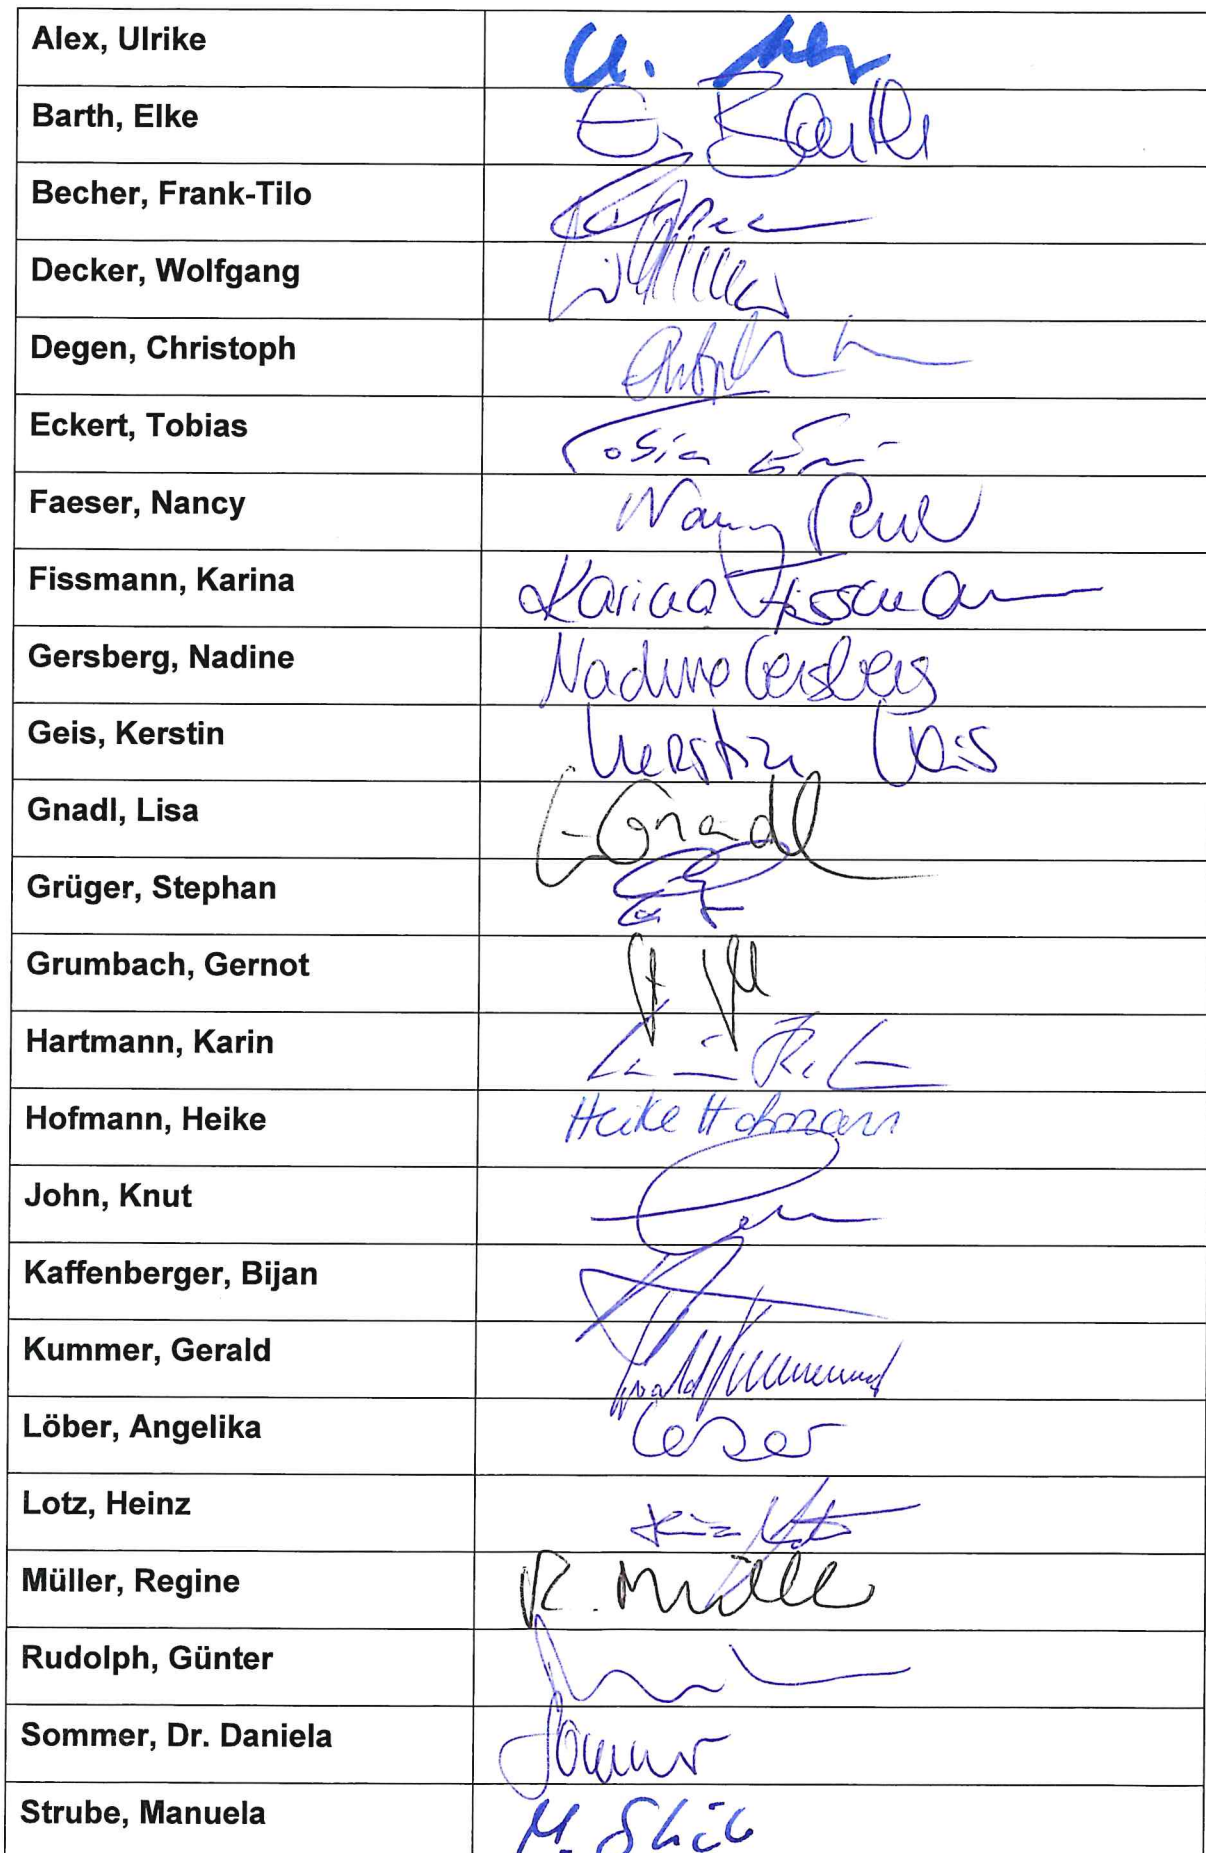 Alex, Ulrike U. Alex
Barth, Elke E. Barth
Becher, Frank-Tilo
Decker, Wolfgang
Degen, Christoph
Eckert, Tobias Tobias
Faeser, Nancy Nancy
Fissmann, Karina Karina Fissmann
Gersberg, Nadine Nadine Gersberg
Geis, Kerstin Kerstin Geis
Gnadl, Lisa L Gnadl
Grüger, Stephan
Grumbach, Gernot
Hartmann, Karin
Hofmann, Heike Heike Hofmann
John, Knut
Kaffenberger, Bijan
Kummer, Gerald Gerald Kummer
Löber, Angelika Löber
Lotz, Heinz
Müller, Regine R. Müller
Rudolph, Günter
Sommer, Dr. Daniela Sommer
Strube, Manuela M. Strube